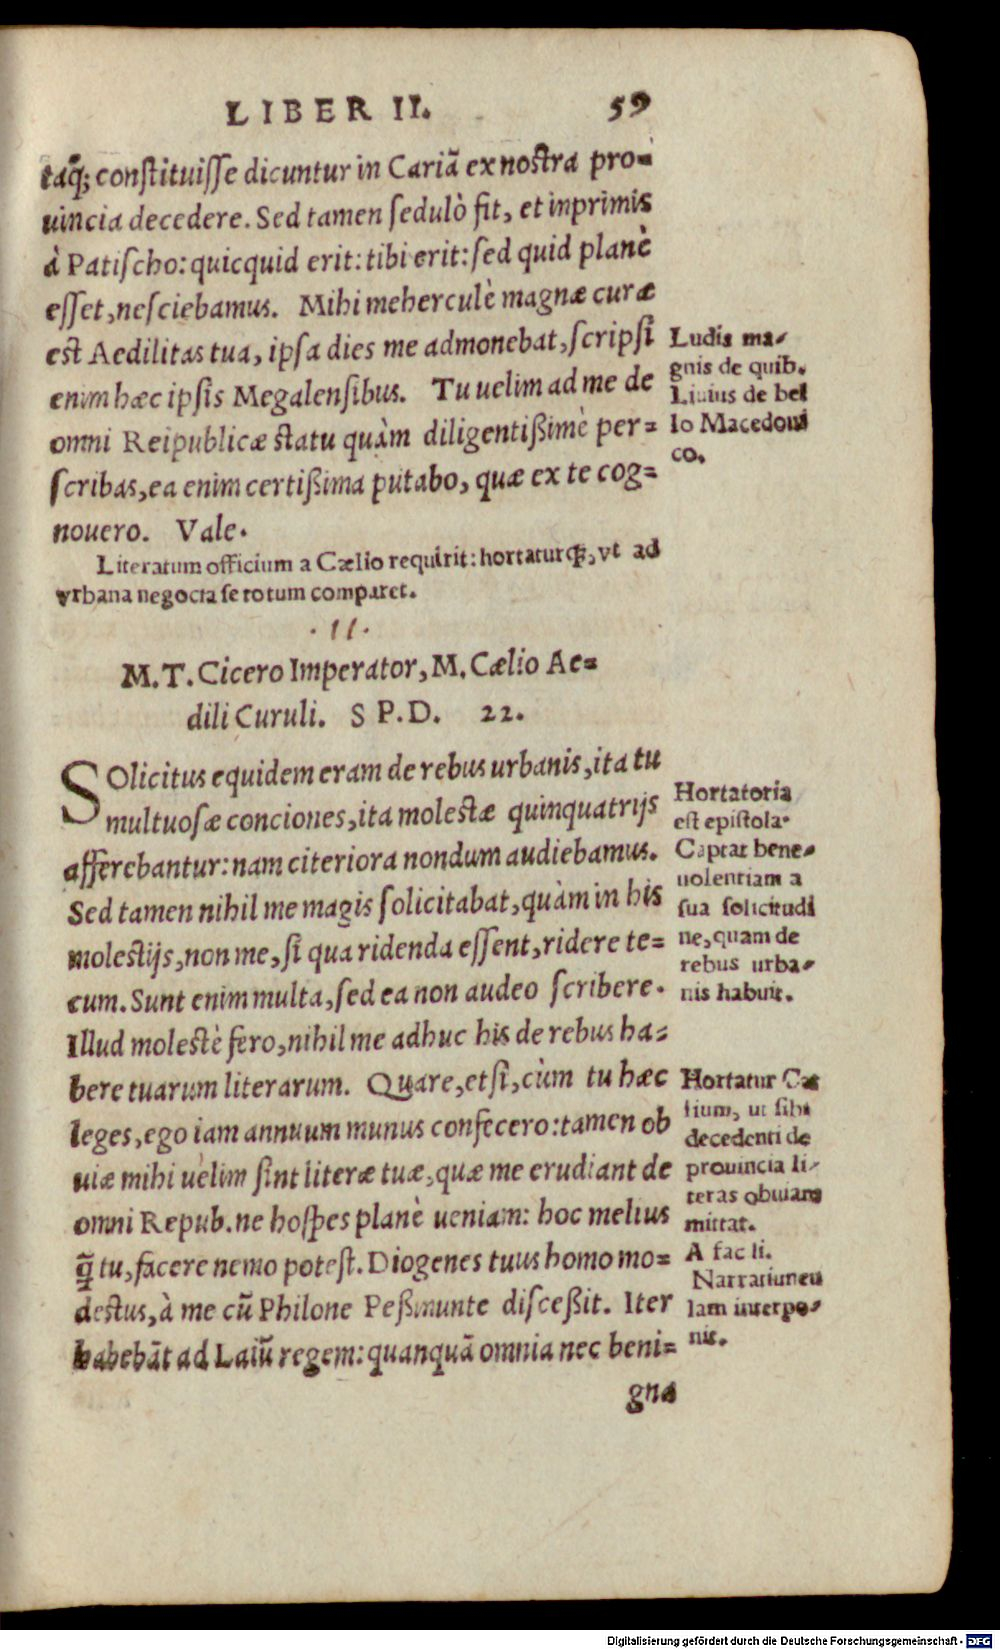 LIBER II. 59
taq́; conſtituiſſe dicuntur in Cariã ex noſtra pro-
uincia decedere. Sed tamen ſedulò fit, et inprimis
à Patiſcho: quicquid erit: tibi erit: ſed quid planè
eſſet, neſciebamus. Mihi meherculè magnæ curæ
eſt Aedilitas tua, ipſa dies me admonebat, ſcripſi
enim hæc ipſis Megalenſibus. Tu uelim ad me de
omni Reipublicæ ſtatu quàm diligentißimè per-
ſcribas, ea enim certißima putabo, quæ ex te cog-
nouero. Vale.
Ludis ma-
gnis de quib.
Liuius de bel
lo Macedoni
co.
Literatum officium a Cælio requirit: hortaturq́;, vt ad
vrbana negocia se totum comparet.
. 11 .
M. T. Cicero Imperator, M. Cælio Ae-
dili Curuli. S P. D. 22.
SOlicitus equidem eram de rebus urbanis, ita tu
multuoſæ conciones, ita moleſtæ quinquatrijs
afferebantur: nam citeriora nondum audiebamus.
Sed tamen nihil me magis ſolicitabat, quàm in his
moleſtijs, non me, ſi qua ridenda eſſent, ridere te-
cum. Sunt enim multa, ſed ea non audeo ſcribere.
Illud moleſtè fero, nihil me adhuc his de rebus ha-
bere tuarum literarum. Quare, etſi, cùm tu hæc
leges, ego iam annuum munus confecero: tamen ob
uiæ mihi uelim ſint literæ tuæ, quæ me erudiant de
omni Repub. ne hoſpes planè ueniam: hoc melius
q̃ tu, facere nemo poteſt. Diogenes tuus homo mo-
deſtus, à me cũ Philone Peßinunte diſceßit. Iter
habebãt ad Laiũ regem: quanquã omnia nec beni-
gna
Hortatoria
eſt epiſtola.
Captat bene-
uolentiam a
ſua ſolicitudi
ne, quam de
rebus urba-
nis habuit.
Hortatur Cæ
lium, ut ſibi
decedenti de
prouincia li-
teras obuiam
mittat.
A fac li.
Narratiuncu
lam interpo-
nit.
Digitalisierung gefördert durch die Deutsche Forschungsgemeinschaft - DFG